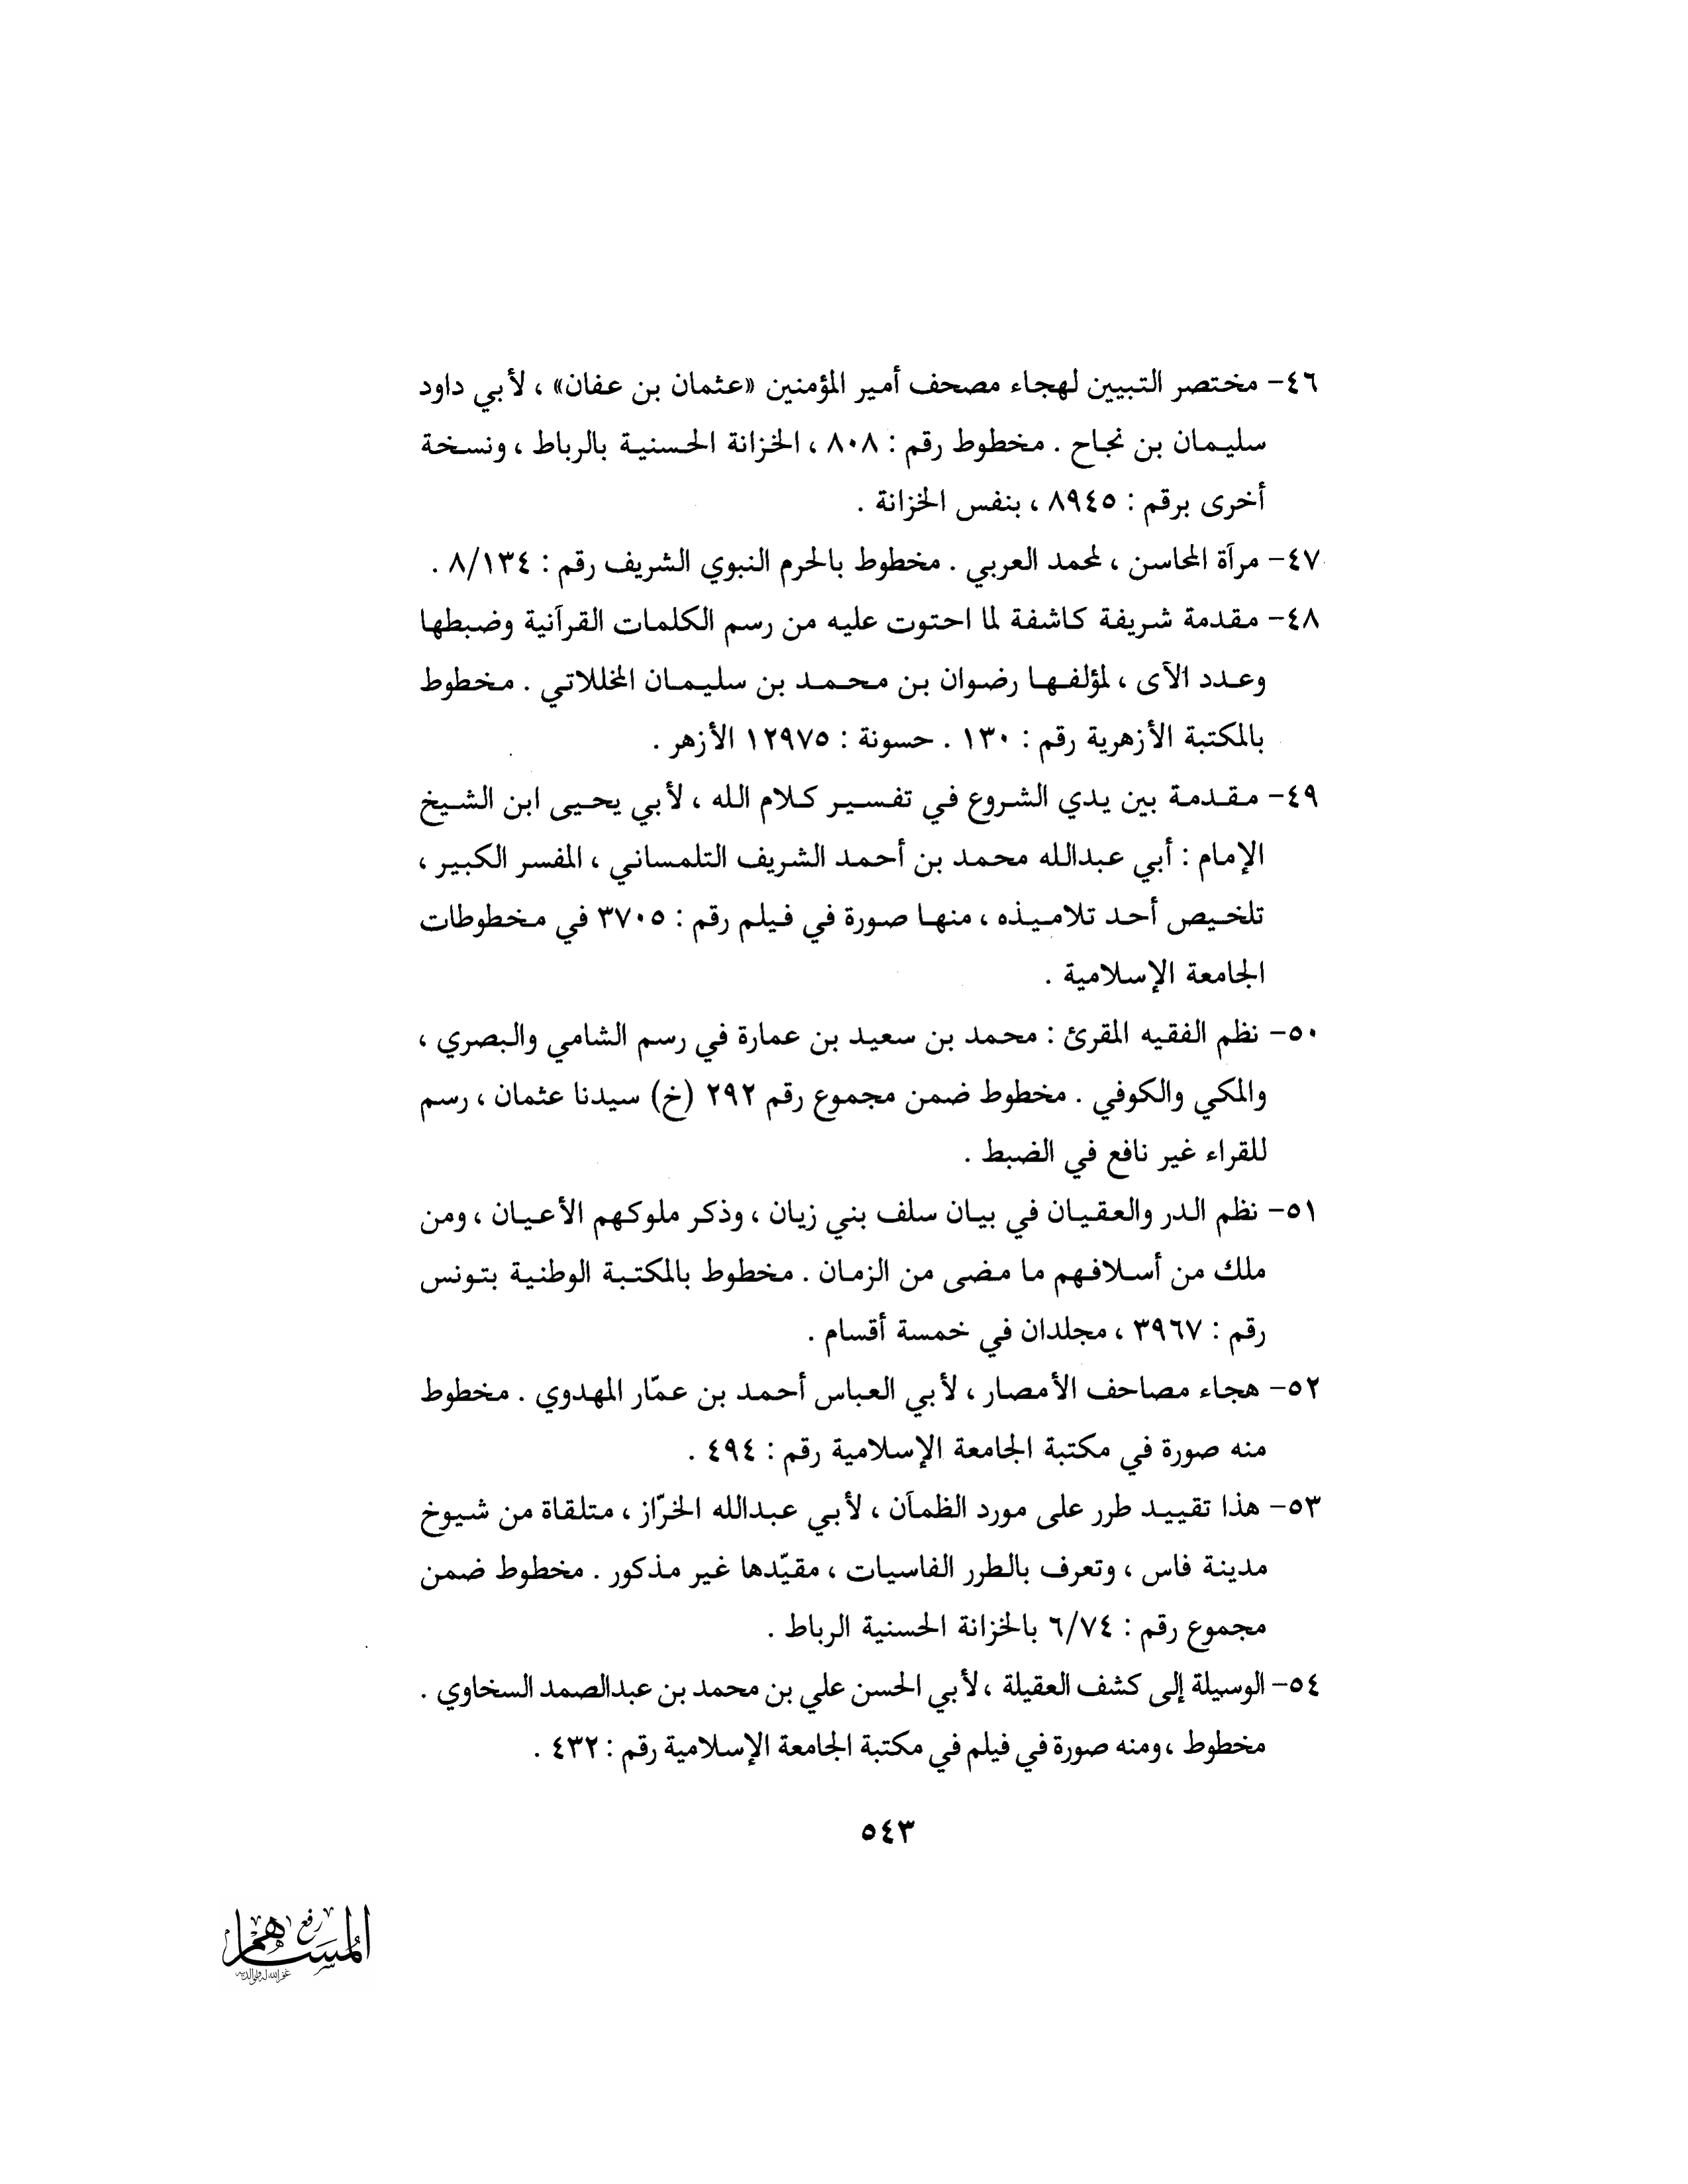 ٤٦- مختصر التبيين لهجاء مصحف أمير المؤمنين «عثمان بن عفان» ، لأبي داود
سليمان بن نجاح . مخطوط رقم : ٨٠٨ ، الخزانة الحسنية بالرباط ، ونسخة
أخرى برقم : ٨٩٤٥ ، بنفس الخزانة .
٤٧- مرآة المحاسن ، لمحمد العربي . مخطوط بالحرم النبوي الشريف رقم : ٨/١٣٤ .
٤٨- مقدمة شريفة كاشفة لما احتوت عليه من رسم الكلمات القرآنية وضبطها
وعدد الآى ، لمؤلفها رضوان بن محمد بن سليمان المخللاتي . مخطوط
بالمكتبة الأزهرية رقم : ١٣٠ . حسونة : ١٢٩٧٥ الأزهر .
٤٩- مقدمة بين يدي الشروع في تفسير كلام الله ، لأبي يحيى ابن الشيخ
الإمام : أبي عبدالله محمد بن أحمد الشريف التلمساني ، المفسر الكبير ،
تلخيص أحد تلاميذه ، منها صورة في فيلم رقم : ٣٧٠٥ في مخطوطات
الجامعة الإسلامية .
٥٠- نظم الفقيه المقرئ : محمد بن سعيد بن عمارة في رسم الشامي والبصري ،
والمكي والكوفي . مخطوط ضمن مجموع رقم ٢٩٢ (خ) سيدنا عثمان ، رسم
للقراء غير نافع في الضبط .
٥١- نظم الدر والعقيان في بيان سلف بني زيان ، وذكر ملوكهم الأعيان ، ومن
ملك من أسلافهم ما مضى من الزمان . مخطوط بالمكتبة الوطنية بتونس
رقم : ٣٩٦٧ ، مجلدان في خمسة أقسام .
٥٢- هجاء مصاحف الأمصار ، لأبي العباس أحمد بن عمّار المهدوي . مخطوط
منه صورة في مكتبة الجامعة الإسلامية رقم : ٤٩٤ .
٥٣- هذا تقييد طرر على مورد الظمآن ، لأبي عبدالله الخرّاز ، متلقاة من شيوخ
مدينة فاس ، وتعرف بالطرر الفاسيات ، مقيّدها غير مذكور . مخطوط ضمن
مجموع رقم : ٦/٧٤ بالخزانة الحسنية الرباط .
٥٤- الوسيلة إلى كشف العقيلة ، لأبي الحسن علي بن محمد بن عبدالصمد السخاوي .
مخطوط ، ومنه صورة في فيلم في مكتبة الجامعة الإسلامية رقم : ٤٣٢ .
٥٤٣
رفع
غفر الله له ولوالديه